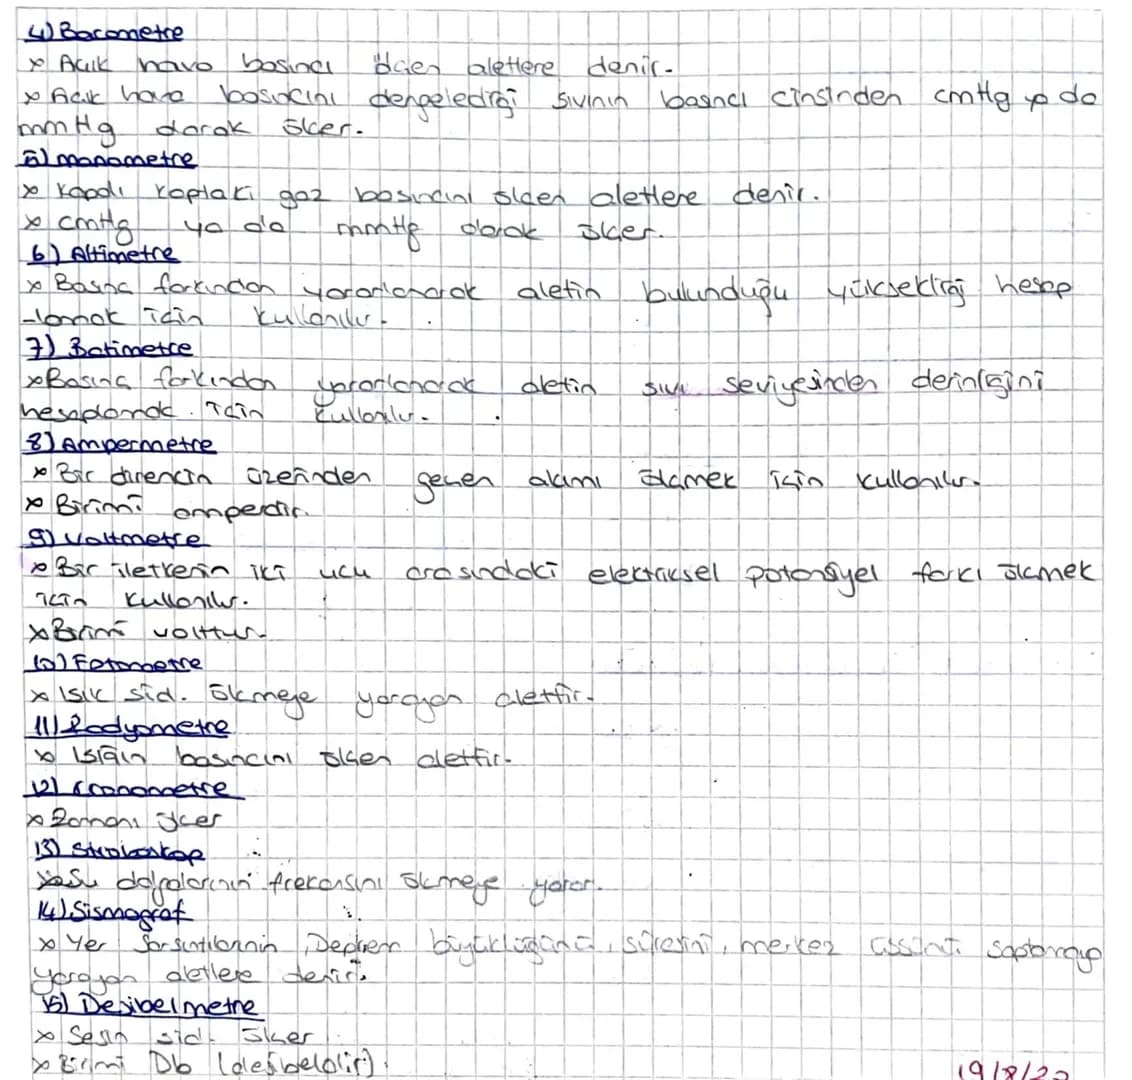 4) Barometre
x Açık hava basıncı ölçen aletlere denir.
x Açık hava basıncını dengelediği sıvının basıncı cinsinden cmHg ya da
mmHg olarak ölçer.
5) manometre
x Kapalı kaptaki gaz basıncını ölçen aletlere denir.
x cmHg ya da mmHg olarak ölçer.
6) Altimetre
x Basınç farkından yararlanarak aletin bulunduğu yüksekliği hesap
-lamak için kullanılır.
7) Batimetre
x Basınç farkından yararlanarak aletin sıvı seviyesinden derinliğini
hesaplamak için kullanılır.
8) Ampermetre
x Bir direncin üzerinden geçen akımı ölçmek için kullanılır.
x Birimi amperdir.
9) Voltmetre
x Bir iletkenin iki ucu arasındaki elektriksel potansiyel farkı ölçmek
için kullanılır.
x Birimi volttur.
10) Fotometre
x Işık şid. ölçmeye yarayan alettir.
11) Radyometre
x Işığın basıncını ölçen alettir.
12) Kronometre
x Zamanı ölçer
13) Stroboskop
x Su dalgalarının frekansını ölçmeye yarar.
14) Sismograf
x Yer sarsıntılarının, Deprem büyüklüğünü, süresini, merkez saptamaya
yarayan aletlere denir.
15) Desibelmetre
x Sesin şid. ölçer.
x Birimi Db (desibeldir).
19/8/22